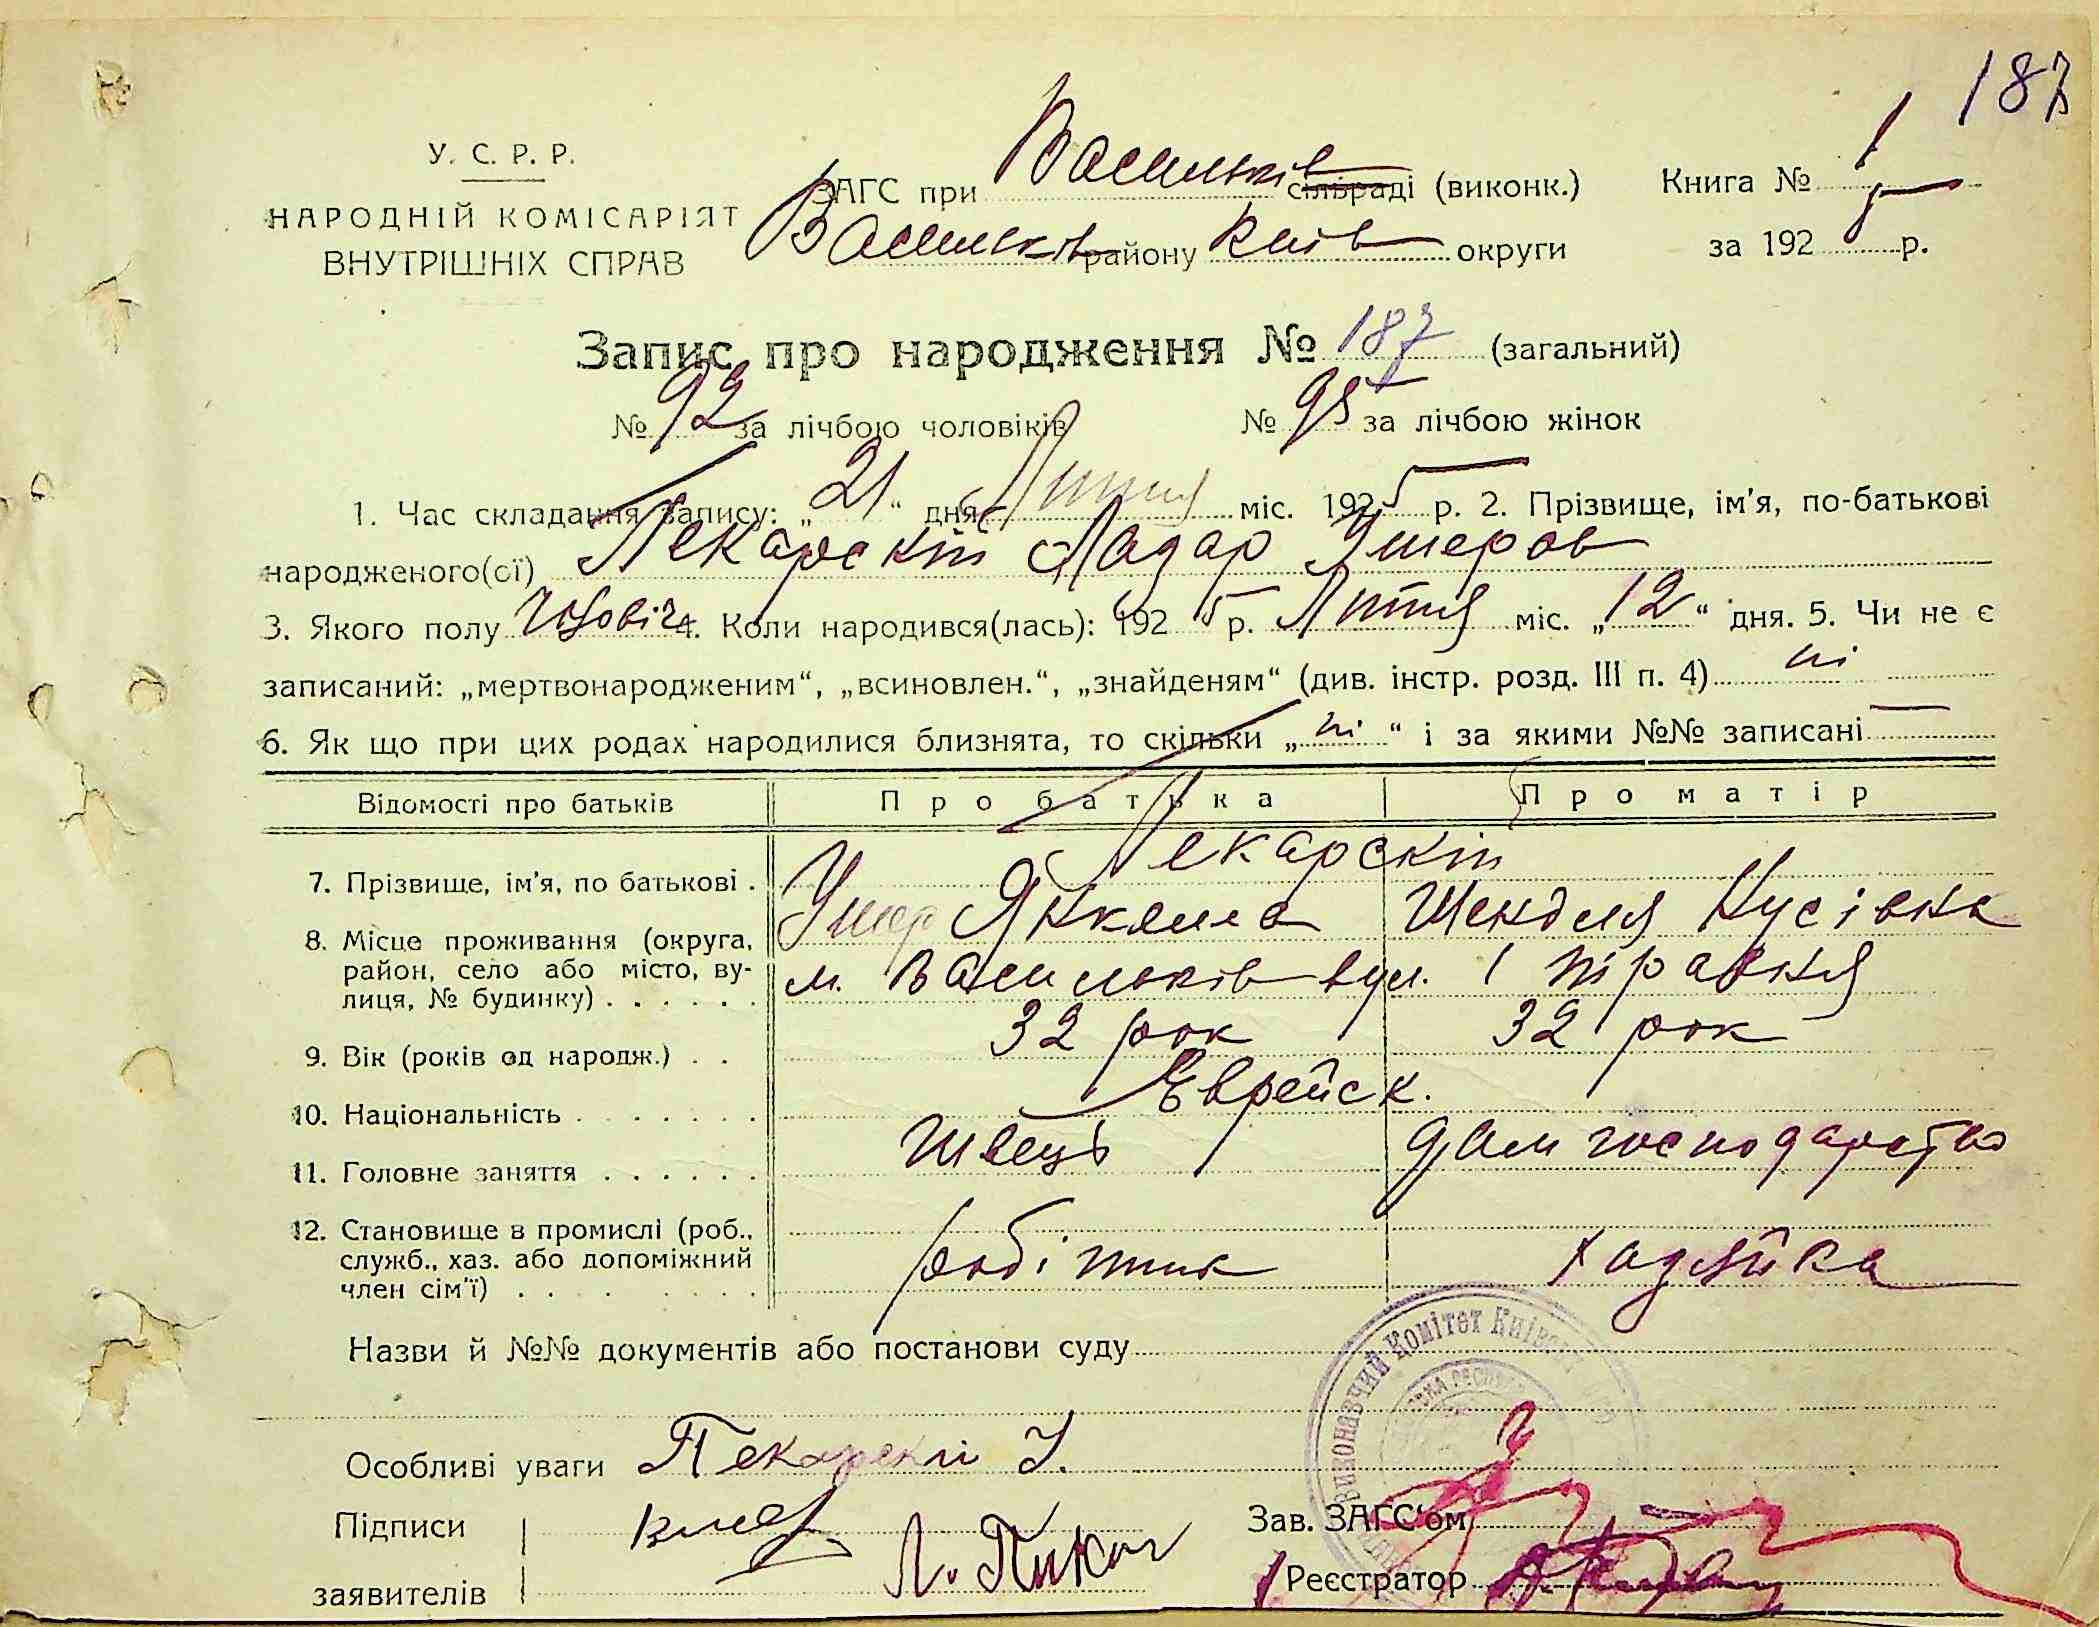 187
У. С. Р. Р.
НАРОДНІЙ КОМІСАРІЯТ
ВНУТРІШНІХ СПРАВ
ЗАГС при Васильків сільраді (виконк.) Книга № 1
Васильків району Київ округи за 1925 р.
Запис про народження № 187 (загальний)
№ 92 за лічбою чоловіків № 95 за лічбою жінок
1. Час складання запису: „21“ дня Лютня міс. 1925 р. 2. Прізвище, ім'я, по-батькові
народженого(сї) Пекарскій Лазар Ушеров
3. Якого полу Чоловіч 4. Коли народився(лась): 1925 р. Лютня міс. „12“ дня. 5. Чи не є
записаний: „мертвонародженим“, „всиновлен.“, „знайденям“ (див. інстр. розд. III п. 4) ні
6. Як що при цих родах народилися близнята, то скільки „ні“ і за якими №№ записані
Відомості про батьків Про батька Про матір
Пекарскій
7. Прізвище, ім'я, по батькові . Ушер Янкелев Шендля Нусівна
8. Місце проживання (округа, район, село або місто, вулиця, № будинку) . . . . . . м. Васильків вул. 1 травня
9. Вік (років од народж.) . . 32 рок 32 рок
10. Національність . . . . . . . Єврейск.
11. Головне заняття . . . . . . Швець дом господарство
12. Становище в промислі (роб., служб., хаз. або допоміжний член сім'ї) . . . робітник хазяйка
Назви й №№ документів або постанови суду
Виконавчий Комітет
Особливі уваги Пекарскі У.
Підписи
Зав. ЗАГС'ом
заявителів
Реєстратор